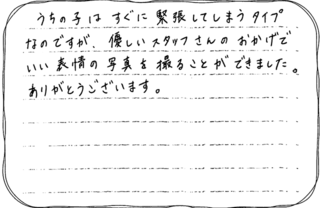 うちの子は すぐに 緊張してしまう タイプ
なのですが、優しいスタッフさんの おかげで
いい 表情の 写真を 撮ることが できました。
ありがとうございます。